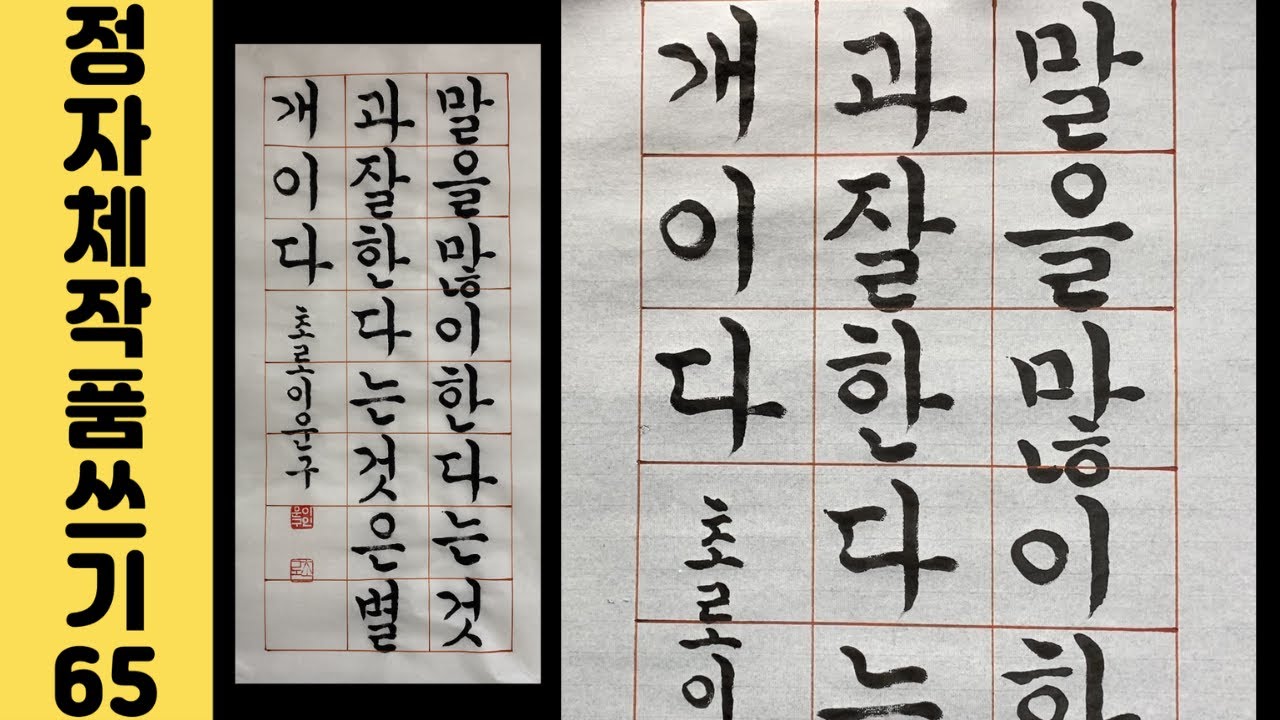 정자체작품쓰기65
말을많이한다는것
과잘한다는것은별
개이다
말을많이한
과잘한다는
개이다